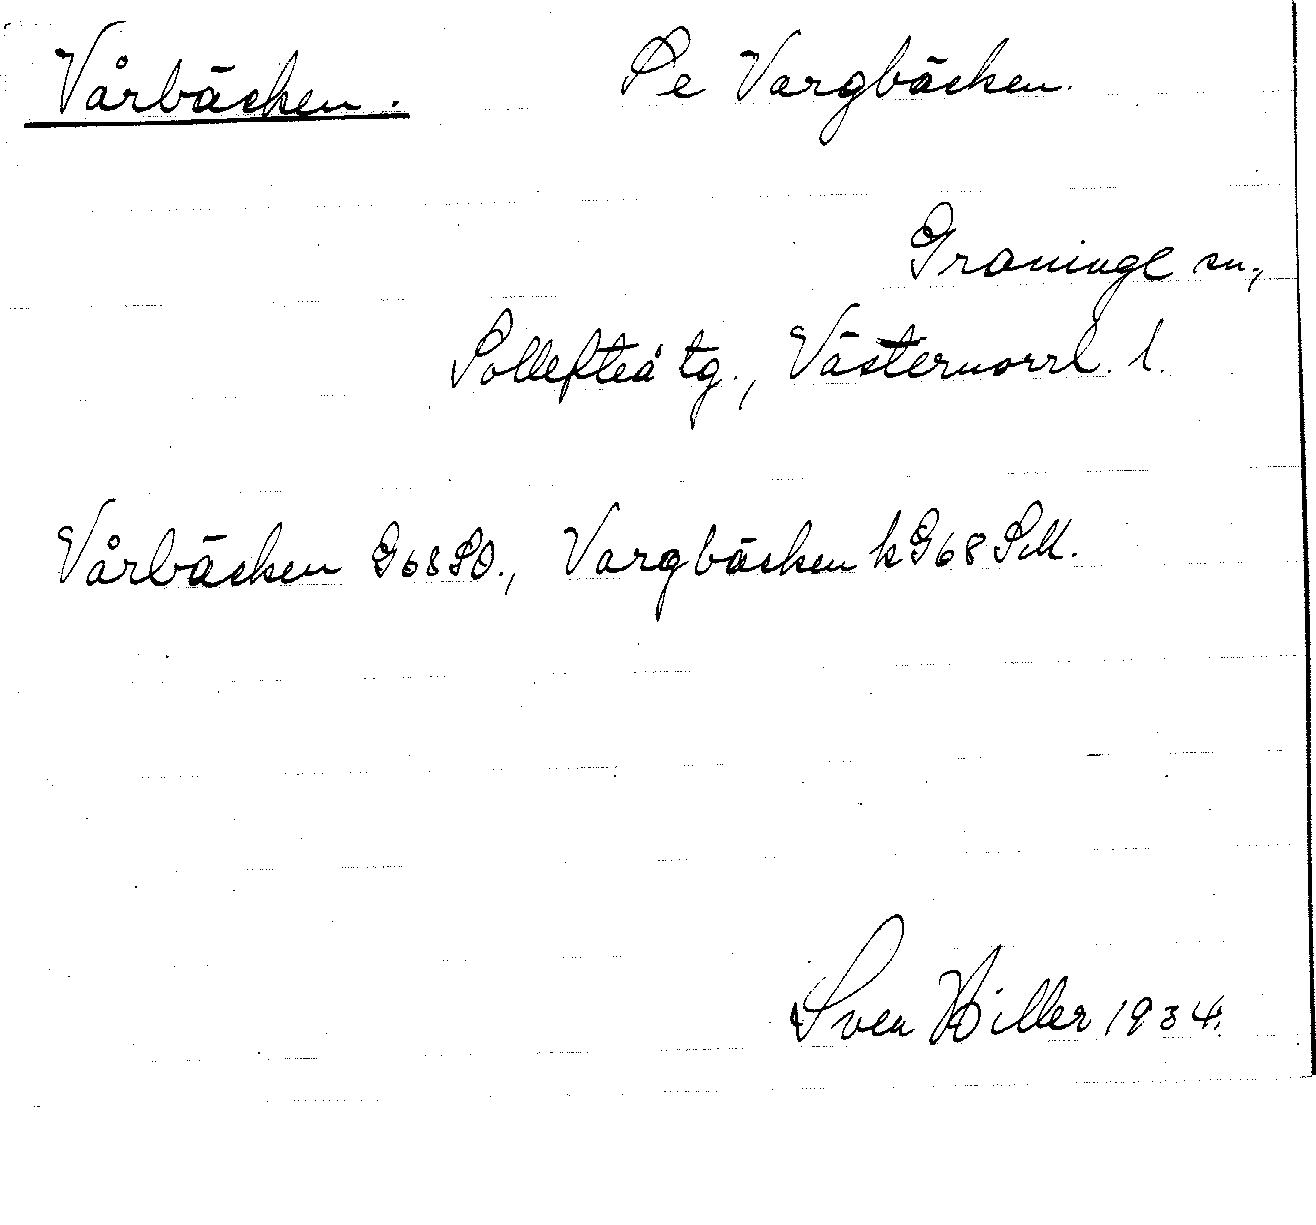 Vårbäcken. Se Vargbäcken.
Graninge sn.,
Sollefteå tg., Västernorrl. l.
Vårbäcken G68SO., Vargbäcken k G68 SM.
Sven Hiller 1934.